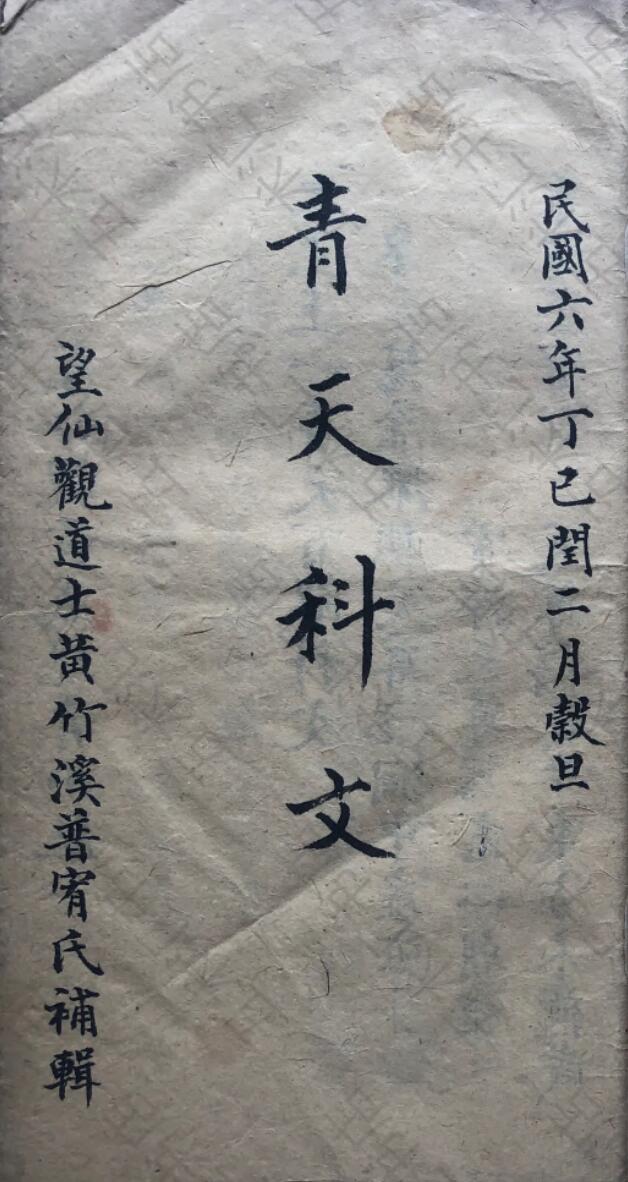 民國六年丁巳閏二月穀旦
青天科文
望仙觀道士黃竹溪普宥氏補輯